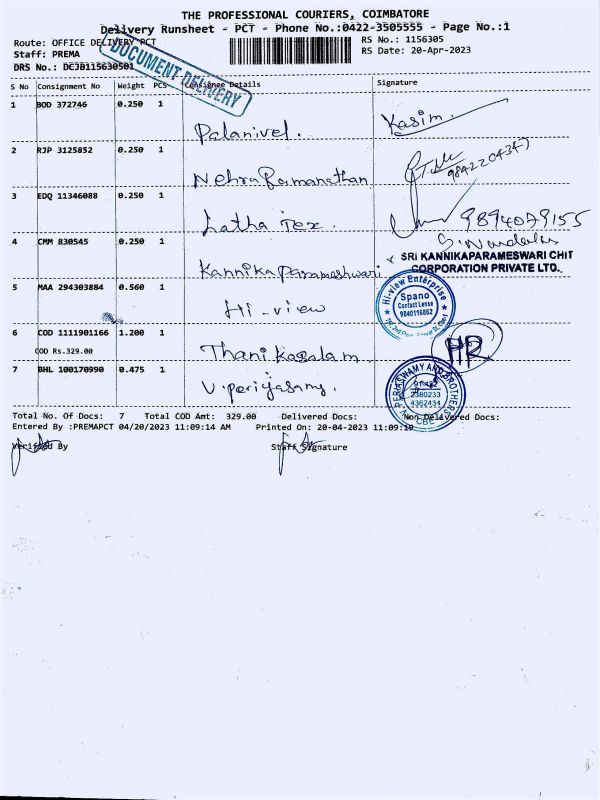 THE PROFESSIONAL COURIERS, COIMBATORE
Delivery Runsheet - PCT - Phone No.:0422-3505555 - Page No.:1
Route: OFFICE DELIVERY PCT
RS No.: 1156305
Staff: PREMA
RS Date: 20-Apr-2023
DRS No.: DCJB115630501
DOCUMENT DELIVERY
S No Consignment No Weight PCS Consignee Details Signature
1 BOD 372746 0.250 1
Palanivel. Kasim.
2 RJP 3125852 0.250 1
Nehru Ramanathan
3 EDQ 11346088 0.250 1
Latha Tex. 9894079155
4 CMM 830545 0.250 1
Kannika parameshwari
SRI KANNIKAPARAMESWARI CHIT
CORPORATION PRIVATE LTD.,
5 MAA 294303884 0.560 1
Hi-view
Hi-view Enterprise
Spano
Contact Lense
9840116862
6 COD 1111901166 1.200 1
COD Rs.329.00
Thanikasalam HR
7 BHL 100170990 0.475 1
V.periyasamy.
V. PERIASWAMY AND BROTHERS
2380233
4362434
CBE
Total No. Of Docs: 7 Total COD Amt: 329.00 Delivered Docs: Non Delivered Docs:
Entered By :PREMAPCT 04/20/2023 11:09:14 AM Printed On: 20-04-2023 11:09:19
Verified By Staff Signature